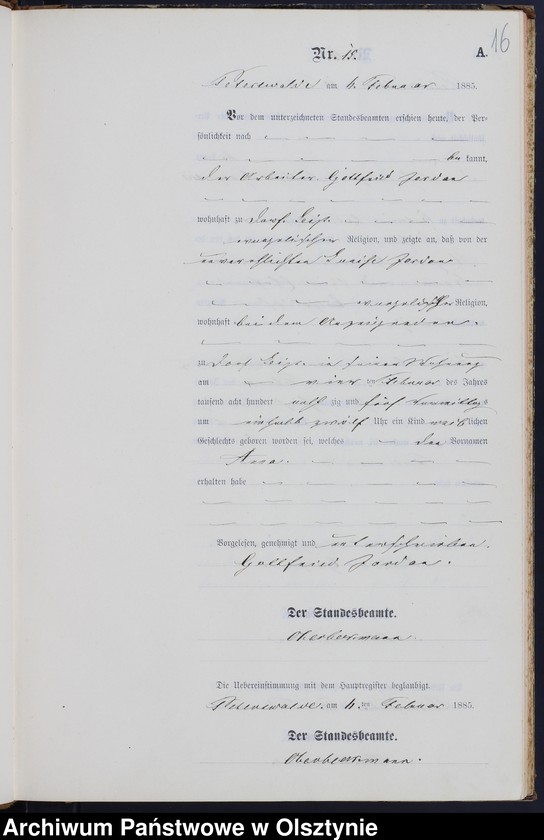 16
Nr. 15. A.
Peterswalde am 4. Februar 1885.
Vor dem unterzeichneten Standesbeamten erschien heute, der Per-
sönlichkeit nach
be kannt,
der Arbeiter Gottfried Jordan
wohnhaft zu Dorf
evangelischer Religion, und zeigte an, daß von der
unverehlichten Jordan
evangelischer Religion,
wohnhaft bei dem Anzeigenden
zu Dorf in seiner Wohnung
am vier ten Februar des Jahres
tausend acht hundert acht zig und fünf Vormittags
um einhalb zwölf Uhr ein Kind weiblichen
Geschlechts geboren worden sei, welches den Vornamen
Anna.
erhalten habe
Vorgelesen, genehmigt und unterschrieben.
Gottfried Jordan.
Der Standesbeamte.
Die Uebereinstimmung mit dem Hauptregister beglaubigt.
Peterswalde am 4. ten Februar 1885.
Der Standesbeamte.
Archiwum Państwowe w Olsztynie